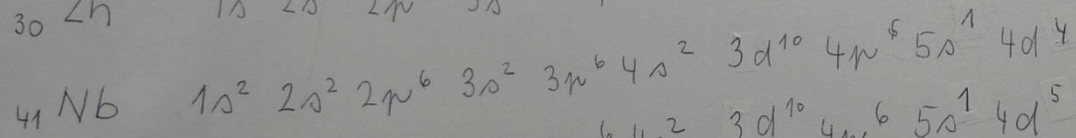 30 Zn 1s 2s 2p 3s
41 Nb 1s² 2s² 2p⁶ 3s² 3p⁶ 4s² 3d¹⁰ 4p⁶ 5s¹ 4d⁴
6 4s² 3d¹⁰ 4p⁶ 5s¹ 4d⁵